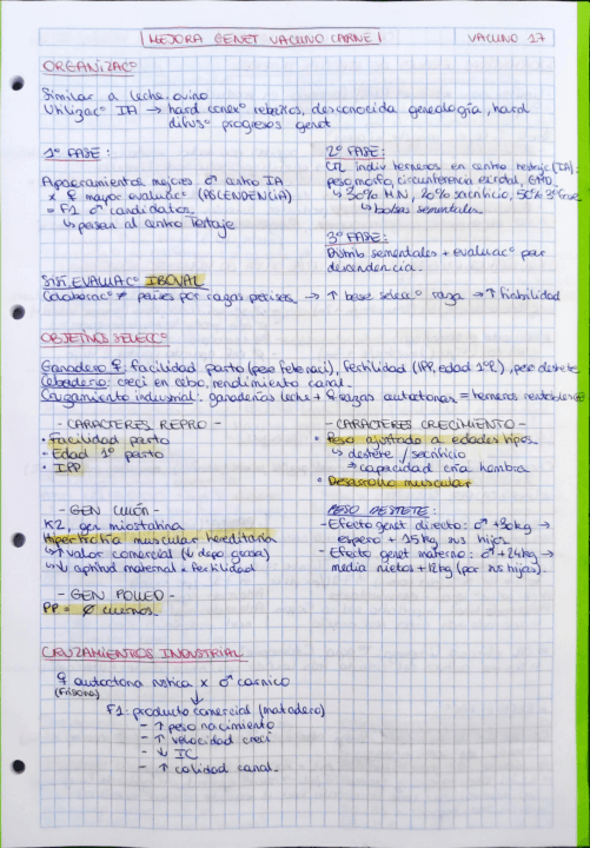 MEJORA GENET VACUNO CARNE
VACUNO 17
ORGANIZACº
Similar a leche ovino
Utilizacº IA → hard conexº rebaños, desconocida genealogía, hard
difusº progresos genet
1º FASE:
Apareamientos mejores ♂ centro IA
x ♀ mayor evaluacº (ASCENDENCIA)
= F1 ♂ candidatos
↳ pasan al centro Testaje
2º FASE:
indiv terneros en centro testaje (IA):
peso, morfo, circunferencia escrotal, GMD
↳ 30% MN, 20% sacrificio, 50% 3º fase
↳ sementales
3º FASE:
Distrib sementales + evaluacº por
descendencia.
SIST. EVALUACº IBOVAL
Colaboracº ≠ países por razas → ↑ base selecº raza → ↑ fiabilidad
OBJETIVOS SELECCº
Ganadero ♀: facilidad parto (peso naci), fertilidad (IPP, edad 1ºP), peso destete
Cebadero: creci en cebo, rendimiento canal.
Cruzamiento industrial: ganaderías leche + ♀ razas autóctonas = terneros rentables
- CARACTERES REPRO -
• Facilidad parto
- Edad 1º parto
• IPP
- CARACTERES CRECIMIENTO -
• Peso ajustado a edades tipos
↳ destete / sacrificio
⇒ capacidad cría hembra
• Desarrollo muscular
- GEN CULÓN -
K2, gen miostatina
Hipertrofia muscular hereditaria
↳ ↑ valor comercial (↓ depo grasa)
↳ ↓ aptitud maternal + fertilidad
PESO DESTETE:
- Efecto genet directo: ♂ +30kg →
espero + 15kg sus hijos
- Efecto genet materno: ♂ +24kg →
media nietos +12kg (por sus hijas).
- GEN POLLED -
PP = ∅ cuernos.
CRUZAMIENTOS INDUSTRIAL
♀ autóctona rústica x ♂ cárnico
(Frisona)
↓
F1: producto comercial (matadero)
- ↑ peso nacimiento
- ↑ velocidad creci
- ↓ IC
- ↑ calidad canal.